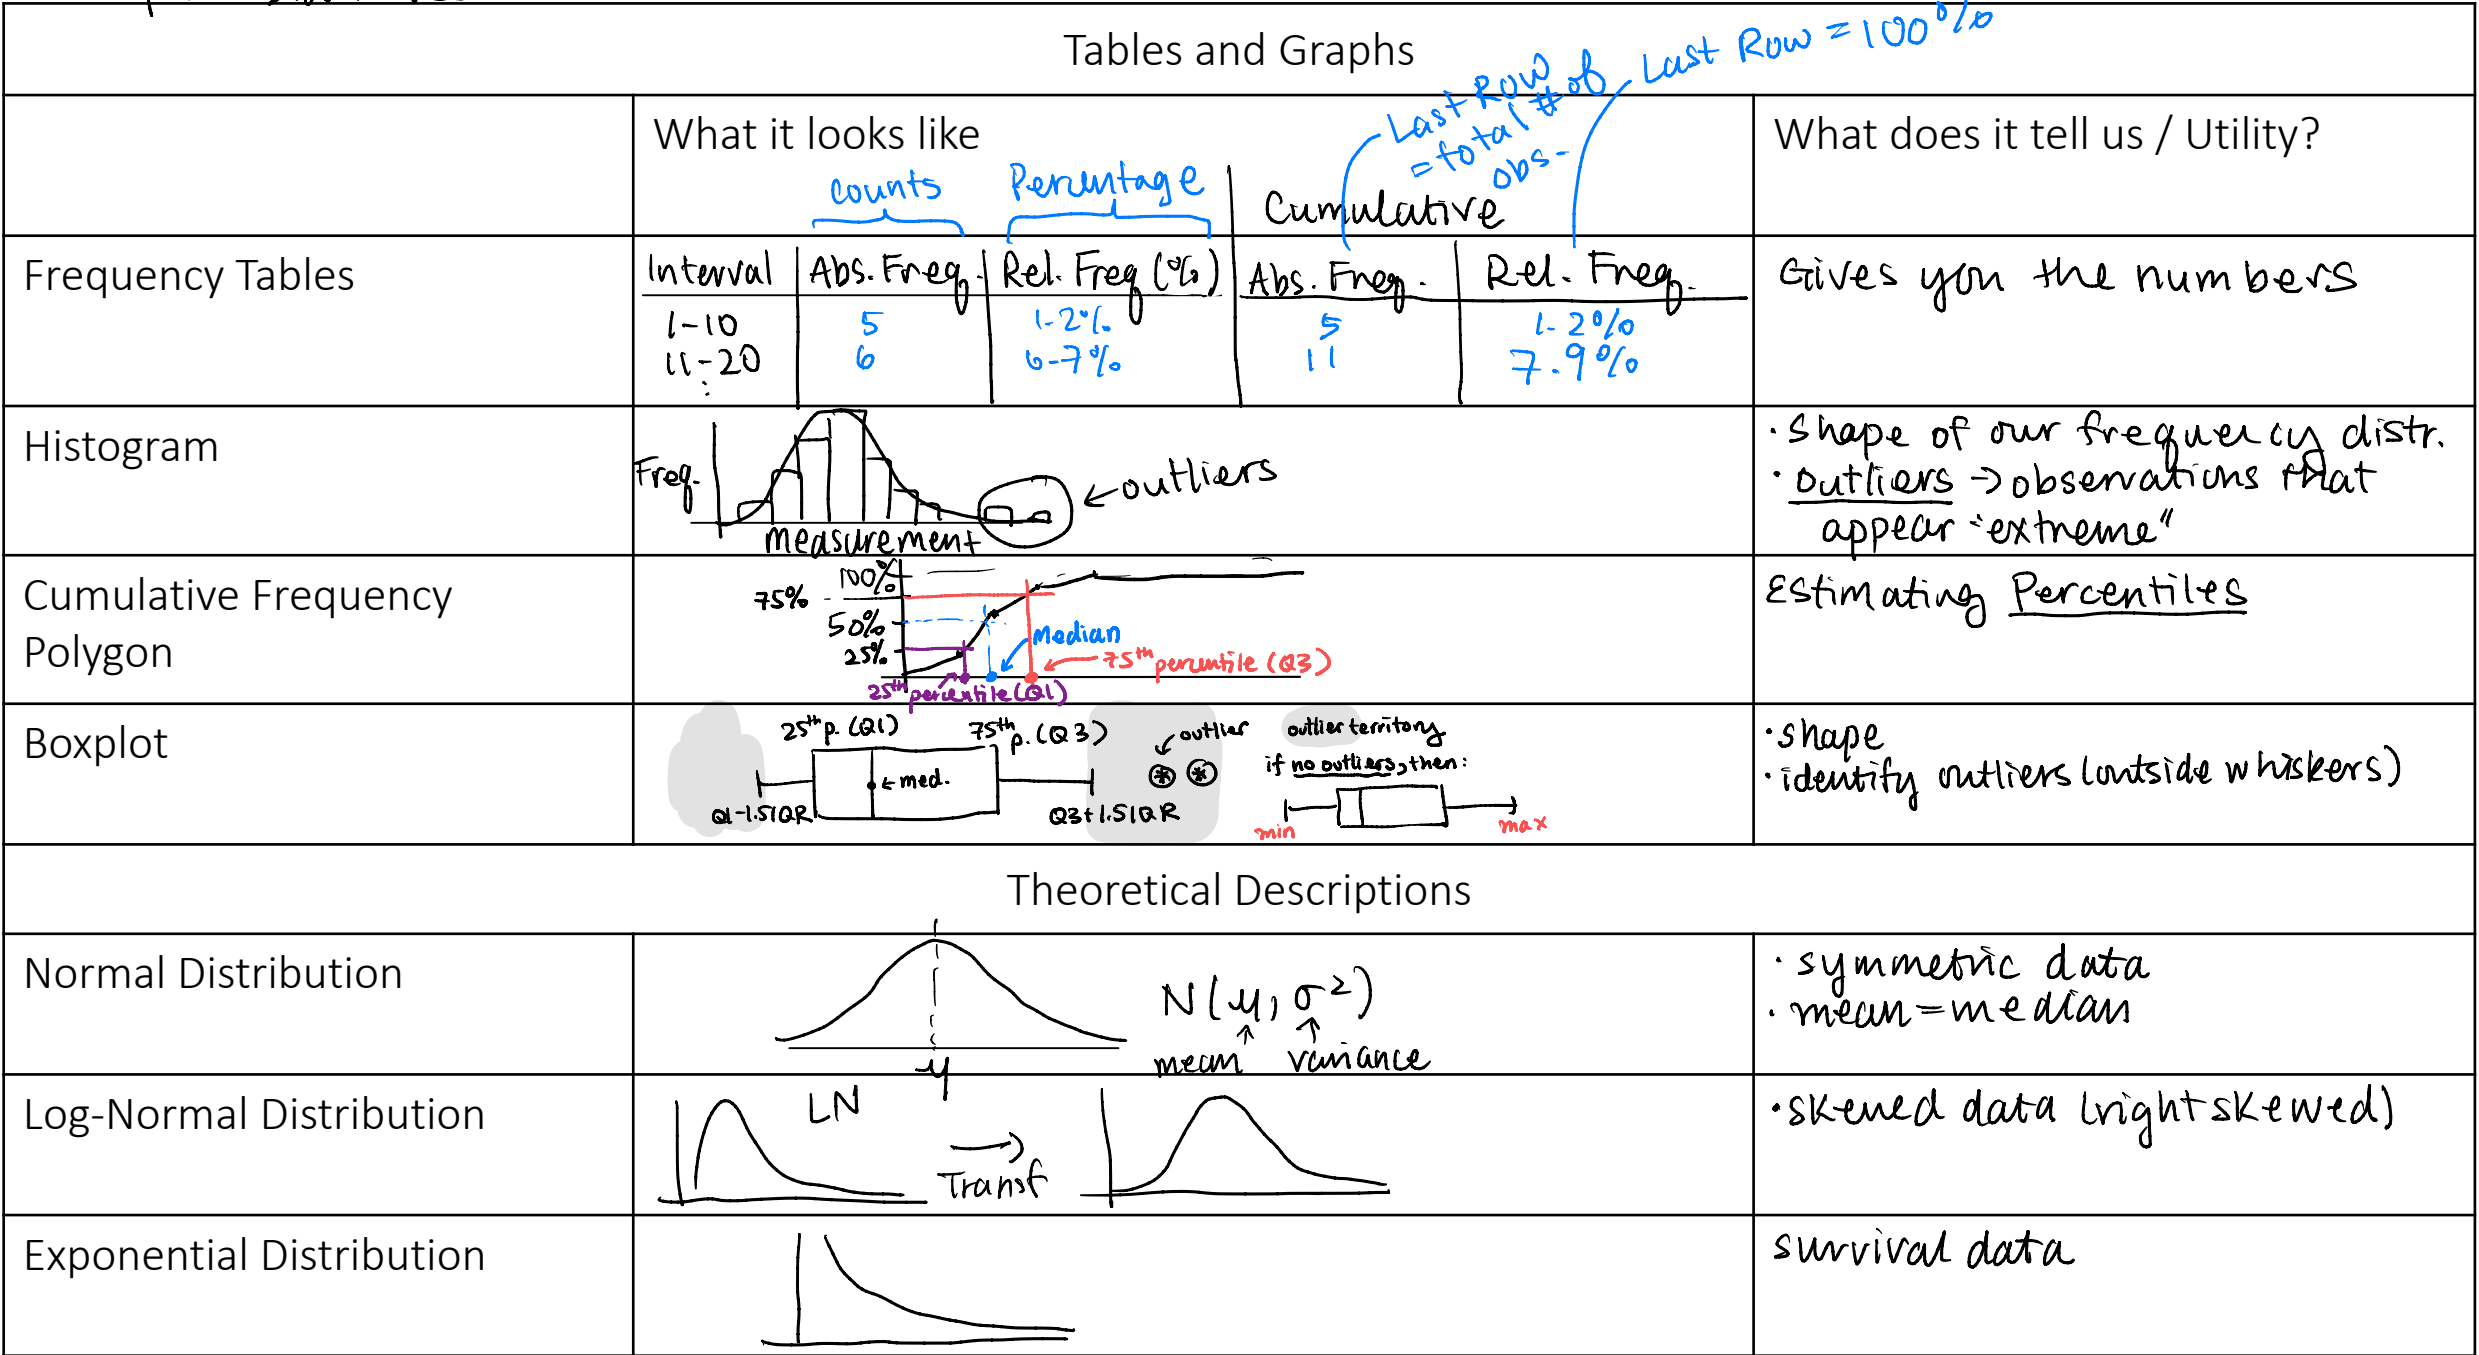 Tables and Graphs
Last Row = 100%
Last Row
= total # of
obs.
What it looks like
What does it tell us / Utility?
counts
Percentage
Cumulative
Frequency Tables
Interval Abs. Freq. Rel. Freq (%) Abs. Freq. Rel. Freq.
1-10 5 1.2% 5 1.2%
11-20 6 6.7% 11 7.9%
Gives you the numbers
Histogram
Freq.
Measurement
outliers
• Shape of our frequency distr.
• outliers → observations that
appear "extreme"
Cumulative Frequency
Polygon
100%
75%
50%
25%
Median
75th percentile (Q3)
25th percentile (Q1)
Estimating Percentiles
Boxplot
25th p. (Q1)
75th p. (Q3)
outlier
outlier territory
if no outliers, then:
med.
Q1-1.5IQR
Q3+1.5IQR
min
max
• shape
• identify outliers (outside whiskers)
Theoretical Descriptions
Normal Distribution
μ
N(μ, σ²)
mean variance
• symmetric data
• mean = median
Log-Normal Distribution
LN
Transf
• skewed data (right skewed)
Exponential Distribution
survival data